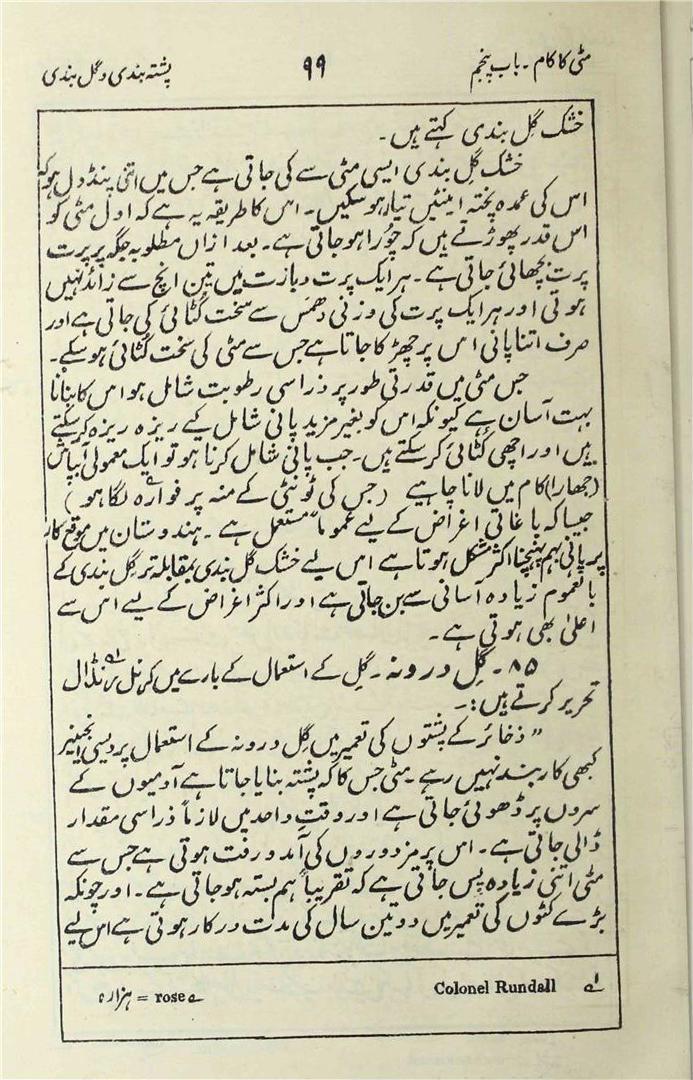 مٹی کا کام ۔ باب پنجم ۹۹ پشتہ بندی و گل بندی
خشک گِل بندی کہتے ہیں ۔
خشک گِل بندی ایسی مٹی سے کی جاتی ہے جس میں اتنی پنڈول ہو کہ
اس کی عمدہ پختہ اینٹیں تیار ہو سکیں ۔ اس کا طریقہ یہ ہے کہ اول مٹی کو
اس قدر پھوڑتے ہیں کہ چُورا ہو جاتی ہے ۔ بعد ازاں مطلوبہ جگہ پر پرت
پرت بچھائی جاتی ہے ۔ ہر ایک پرت دبازت میں تین انچ سے زائد نہیں
ہوتی اور ہر ایک پرت کی وزنی دھمَس سے سخت کُٹائی کی جاتی ہے اور
صرف اتنا پانی اس پر چھڑکا جاتا ہے جس سے مٹی کی سخت کُٹائی ہو سکے ۔
جس مٹی میں قدرتی طور پر ذرا سی رطوبت شامل ہو اس کا بنانا
بہت آسان ہے کیونکہ اس کو بغیر مزید پانی شامل کیے ریزہ ریزہ کر سکتے
ہیں اور اچھی کُٹائی کر سکتے ہیں ۔ جب پانی شامل کرنا ہو تو ایک معمولی آبپاش
(جھارا) کام میں لانا چاہیے (جس کی ٹونٹی کے منہ پر فوارہ لگا ہو)
جیسا کہ باغاتی اغراض کے لیے عموماً مستعمل ہے ۔ ہندوستان میں موقع کار
پر پانی بہم پہنچنا اکثر مشکل ہوتا ہے اس لیے خشک گل بندی بمقابلہ تر گِل بندی کے
بالعموم زیادہ آسانی سے بن جاتی ہے اور اکثر اغراض کے لیے اس سے
اعلیٰ بھی ہوتی ہے ۔
۸۵ ۔ گِل درونہ ۔ گِل کے استعمال کے بارے میں کرنل رنڈال
تحریر کرتے ہیں :۔
” ذخائر کے پشتوں کی تعمیر میں گِل درونہ کے استعمال پر دیسی انجینیر
کبھی کاربند نہیں رہے ۔ مٹی جس کا کہ پشتہ بنایا جاتا ہے آدمیوں کے
سروں پر ڈھوئی جاتی ہے اور وقتِ واحد میں لازماً ذرا سی مقدار
ڈالی جاتی ہے ۔ اس پر مزدوروں کی آمد و رفت ہوتی ہے جس سے
مٹی اتنی زیادہ پِس جاتی ہے کہ تقریباً ہم بستہ ہو جاتی ہے ۔ اور چونکہ
بڑے کٹوں کی تعمیر میں دو تین سال کی مدت درکار ہوتی ہے اس لیے
۱ے Colonel Rundall ے rose = ہزارہ